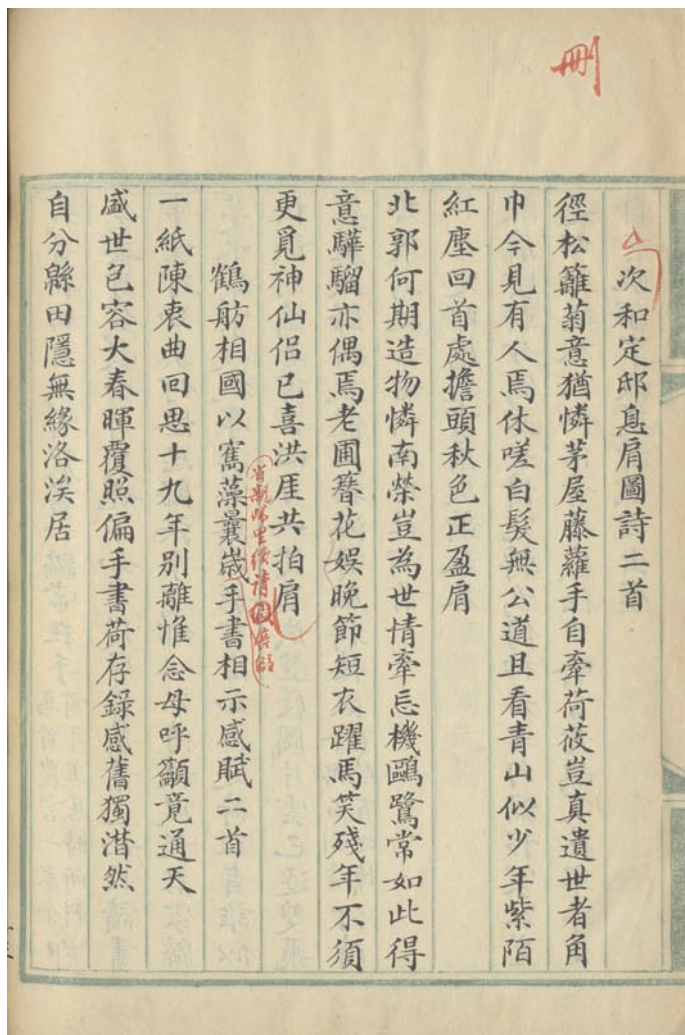 刪
次和定邸息肩圖詩二首
徑松籬菊意猶憐茅屋藤蘿手自牽荷莜豈真遺世者角
巾今見有人焉休嗟白髮無公道且看青山似少年紫陌
紅塵回首處擔頭秋色正盈肩
北郭何期造物憐南榮豈為世情牽忘機鷗鷺常如此得
意驊騮亦偶焉老圃簪花娛晚節短衣躍馬笑殘年不須
更覓神仙侶已喜洪厓共拍肩
鶴舫相國以寯藻曩歲手書相示感賦二首
省親歸里續請
一紙陳衷曲回思十九年別離惟念母呼籲竟通天
盛世包容大春暉覆照偏手書荷存錄感舊獨潸然
自分緜田隱無緣洛涘居